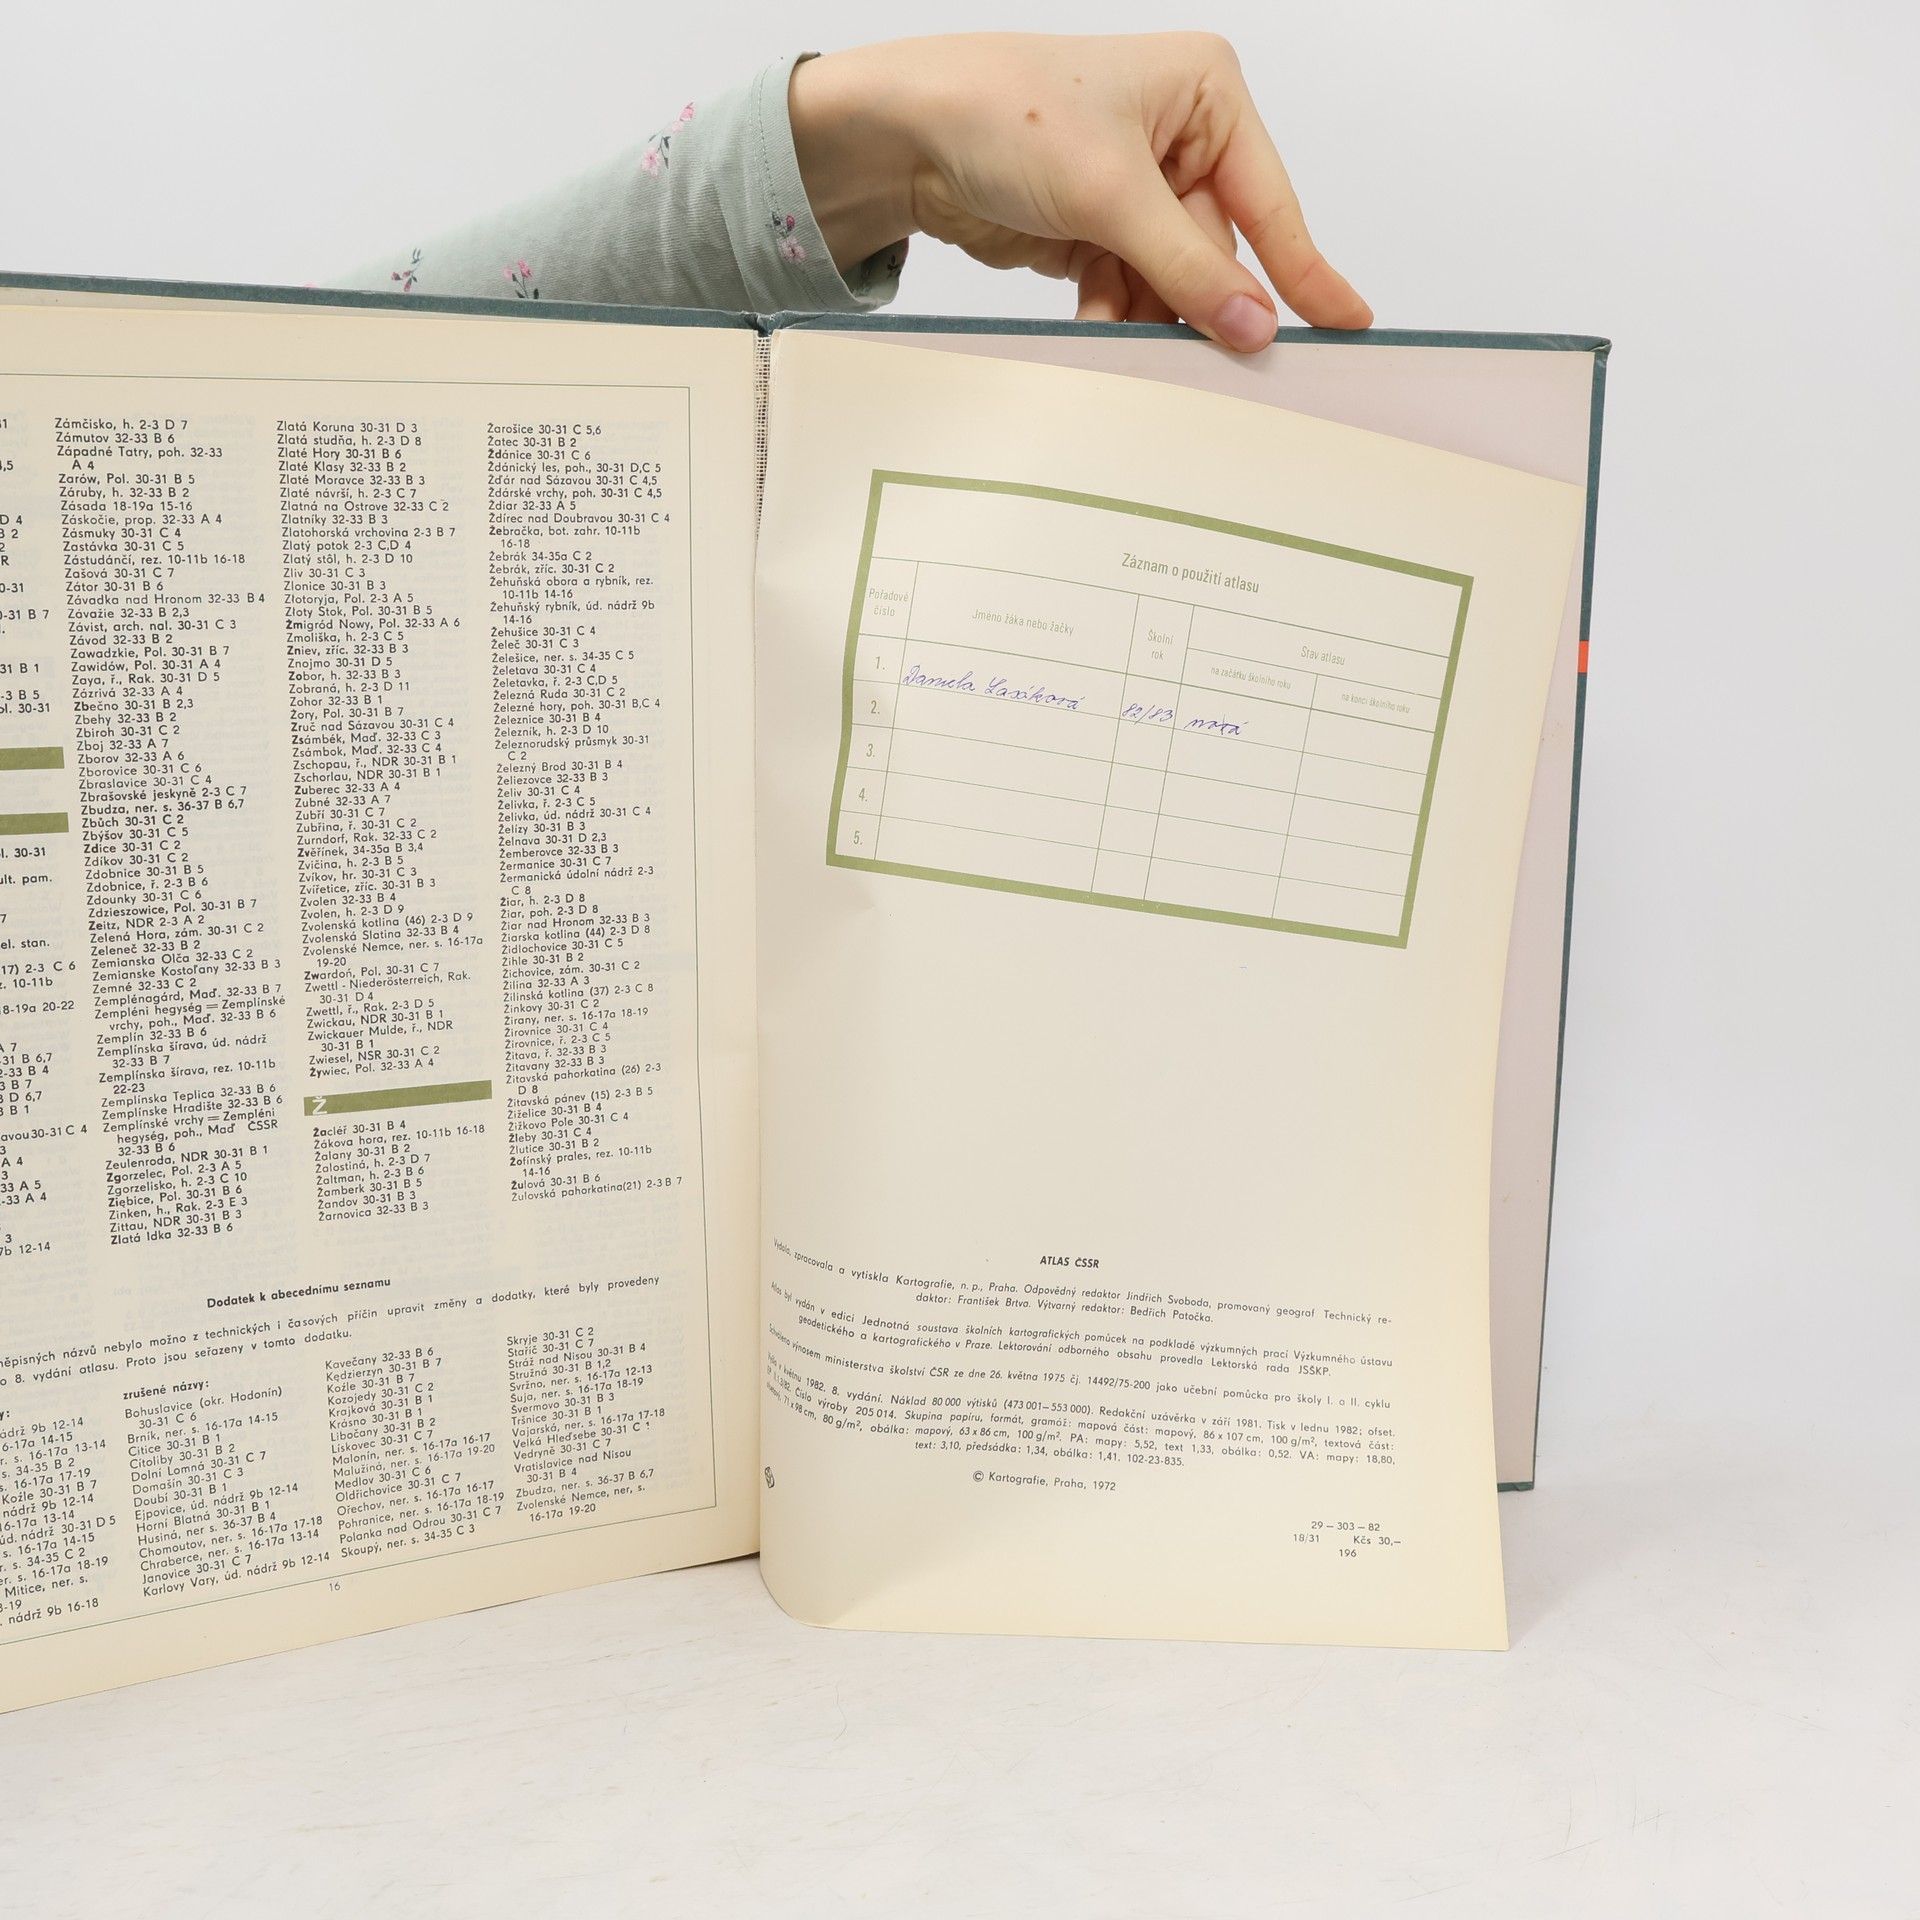 Zámčisko, h. 2-3 D 7
Zámutov 32-33 B 6
Západné Tatry, poh. 32-33
A 4
Zarów, Pol. 30-31 B 5
Záruby, h. 32-33 B 2
Zásada 18-19a 15-16
Záskočie, prop. 32-33 A 4
Zásmuky 30-31 C 4
Zastávka 30-31 C 5
Zástudánčí, rez. 10-11b 16-18
Zašová 30-31 C 7
Zátor 30-31 B 6
Závadka nad Hronom 32-33 B 4
Závažie 32-33 B 2,3
Závist, arch. nal. 30-31 C 3
Závod 32-33 B 2
Zawadzkie, Pol. 30-31 B 7
Zawidów, Pol. 30-31 A 4
Zaya, ř., Rak. 30-31 D 5
Zázrivá 32-33 A 4
Zbečno 30-31 B 2,3
Zbehy 32-33 B 2
Zbiroh 30-31 C 2
Zboj 32-33 A 7
Zborov 32-33 A 6
Zborovice 30-31 C 6
Zbraslavice 30-31 C 4
Zbrašovské jeskyně 2-3 C 7
Zbudza, ner. s. 36-37 B 6,7
Zbůch 30-31 C 2
Zbýšov 30-31 C 5
Zdice 30-31 C 2
Zdíkov 30-31 C 2
Zdobnice 30-31 B 5
Zdobnice, ř. 2-3 B 6
Zdounky 30-31 C 6
Zdzieszowice, Pol. 30-31 B 7
Zeitz, NDR 2-3 A 2
Zelená Hora, zám. 30-31 C 2
Zeleneč 32-33 B 2
Zemianska Olča 32-33 C 2
Zemianske Kostoľany 32-33 B 3
Zemné 32-33 C 2
Zemplénagárd, Maď. 32-33 B 7
Zempléni hegység = Zemplínské
vrchy, poh., Maď. 32-33 B 6
Zemplín 32-33 B 6
Zemplínska šírava, úd. nádrž
32-33 B 7
Zemplínska šírava, rez. 10-11b
22-23
Zemplínska Teplica 32-33 B 6
Zemplínske Hradište 32-33 B 6
Zemplínské vrchy = Zempléni
hegység, poh., Maď ČSSR
32-33 B 6
Zeulenroda, NDR 30-31 B 1
Zgorzelec, Pol. 2-3 A 5
Zgorzelisko, h. 2-3 C 10
Ziębice, Pol. 30-31 B 6
Zinken, h., Rak. 2-3 E 3
Zittau, NDR 30-31 B 3
Zlatá Idka 32-33 B 6
Zlatá Koruna 30-31 D 3
Zlatá studňa, h. 2-3 D 8
Zlaté Hory 30-31 B 6
Zlaté Klasy 32-33 B 2
Zlaté Moravce 32-33 B 3
Zlaté návrší, h. 2-3 C 7
Zlatná na Ostrove 32-33 C 2
Zlatníky 32-33 B 3
Zlatohorská vrchovina 2-3 B 7
Zlatý potok 2-3 C,D 4
Zlatý stôl, h. 2-3 D 10
Zliv 30-31 C 3
Zlonice 30-31 B 3
Zlotoryja, Pol. 2-3 A 5
Zloty Stok, Pol. 30-31 B 5
Žmigród Nowy, Pol. 32-33 A 6
Zmoliška, h. 2-3 C 5
Zniev, zříc. 32-33 B 3
Znojmo 30-31 D 5
Zobor, h. 32-33 B 3
Zobraná, h. 2-3 D 11
Zohor 32-33 B 1
Žory, Pol. 30-31 B 7
Zruč nad Sázavou 30-31 C 4
Zsámbék, Maď. 32-33 C 3
Zsámbok, Maď. 32-33 C 4
Zschopau, ř., NDR 30-31 B 1
Zschorlau, NDR 30-31 B 1
Zuberec 32-33 A 4
Zubné 32-33 A 7
Zubří 30-31 C 7
Zubřina, ř. 30-31 C 2
Zurndorf, Rak. 32-33 C 2
Zvěřínek, 34-35a B 3,4
Zvičina, h. 2-3 B 5
Zvíkov, hr. 30-31 C 3
Zvířetice, zříc. 30-31 B 3
Zvolen 32-33 B 4
Zvolen, h. 2-3 D 9
Zvolenská kotlina (46) 2-3 D 9
Zvolenská Slatina 32-33 B 4
Zvolenské Nemce, ner. s. 16-17a
19-20
Zwardoń, Pol. 30-31 C 7
Zwettl - Niederösterreich, Rak.
30-31 D 4
Zwettl, ř., Rak. 2-3 D 5
Zwickau, NDR 30-31 B 1
Zwickauer Mulde, ř., NDR
30-31 B 1
Zwiesel, NSR 30-31 C 2
Żywiec, Pol. 32-33 A 4
Ž
Žacléř 30-31 B 4
Žákova hora, rez. 10-11b 16-18
Žalany 30-31 B 2
Žalostiná, h. 2-3 D 7
Žaltman, h. 2-3 B 6
Žamberk 30-31 B 5
Žandov 30-31 B 3
Žarnovica 32-33 B 3
Žarošice 30-31 C 5,6
Žatec 30-31 B 2
Ždánice 30-31 C 6
Ždánický les, poh., 30-31 D,C 5
Žďár nad Sázavou 30-31 C 4,5
Žďárské vrchy, poh. 30-31 C 4,5
Ždiar 32-33 A 5
Ždírec nad Doubravou 30-31 C 4
Žebračka, bot. zahr. 10-11b
16-18
Žebrák 34-35a C 2
Žebrák, zříc. 30-31 C 2
Žehuňská obora a rybník, rez.
10-11b 14-16
Žehuňský rybník, úd. nádrž 9b
14-16
Žehušice 30-31 C 4
Želeč 30-31 C 3
Želešice, ner. s. 34-35 C 5
Želetava 30-31 C 4
Želetavka, ř. 2-3 C,D 5
Železná Ruda 30-31 C 2
Železné hory, poh. 30-31 B,C 4
Železnice 30-31 B 4
Železník, h. 2-3 D 10
Železnorudský průsmyk 30-31
C 2
Železný Brod 30-31 B 4
Želiezovce 32-33 B 3
Želiv 30-31 C 4
Želivka, ř. 2-3 C 5
Želivka, úd. nádrž 30-31 C 4
Želízy 30-31 B 3
Želnava 30-31 D 2,3
Žemberovce 32-33 B 3
Žermanice 30-31 C 7
Žermanická údolní nádrž 2-3
C 8
Žiar, h. 2-3 D 8
Žiar, poh. 2-3 D 8
Žiar nad Hronom 32-33 B 3
Žiarska kotlina (44) 2-3 D 8
Židlochovice 30-31 C 5
Žihle 30-31 B 2
Žichovice, zám. 30-31 C 2
Žilina 32-33 A 3
Žilinská kotlina (37) 2-3 C 8
Žinkovy 30-31 C 2
Žirany, ner. s. 16-17a 18-19
Žirovnice 30-31 C 4
Žirovnice, ř. 2-3 C 5
Žitava, ř. 32-33 B 3
Žitavany 32-33 B 3
Žitavská pahorkatina (26) 2-3
D 8
Žitavská pánev (15) 2-3 B 5
Žiželice 30-31 B 4
Žižkovo Pole 30-31 C 4
Žleby 30-31 C 4
Žlutice 30-31 B 2
Žofínský prales, rez. 10-11b
14-16
Žulová 30-31 B 6
Žulovská pahorkatina(21) 2-3 B 7
Dodatek k abecednímu seznamu
nebylo možno z technických i časových příčin upravit změny a dodatky, které byly provedeny
8. vydání atlasu. Proto jsou seřazeny v tomto dodatku.
zrušené názvy:
Bohuslavice (okr. Hodonín)
30-31 C 6
Brník, ner. s. 16-17a 14-15
Citice 30-31 B 1
Cítoliby 30-31 B 2
Dolní Lomná 30-31 C 7
Domašín 30-31 C 3
Doubí 30-31 B 1
Ejpovice, úd. nádrž 9b 12-14
Horní Blatná 30-31 B 1
Husiná, ner s. 36-37 B 4
Chomoutov, ner. s. 16-17a 17-18
Chraberce, ner. s. 16-17a 13-14
Janovice 30-31 C 7
Karlovy Vary, úd. nádrž 9b 12-14
Kavečany 32-33 B 6
Kędzierzyn 30-31 B 7
Koźle 30-31 B 7
Kozojedy 30-31 C 2
Krajková 30-31 B 1
Krásno 30-31 B 1
Libočany 30-31 B 2
Lískovec 30-31 C 7
Malonín, ner. s. 16-17a 16-17
Malužiná, ner. s. 16-17a 19-20
Medlov 30-31 C 6
Oldřichovice 30-31 C 7
Ořechov, ner. s. 16-17a 16-17
Pohranice, ner. s. 16-17a 18-19
Polanka nad Odrou 30-31 C 7
Skoupý, ner. s. 34-35 C 3
Skryje 30-31 C 2
Staříč 30-31 C 7
Stráž nad Nisou 30-31 B 4
Stružná 30-31 B 1,2
Svržno, ner. s. 16-17a 12-13
Šuja, ner. s. 16-17a 18-19
Švermovo 30-31 B 3
Tršnice 30-31 B 1
Vajarská, ner. s. 16-17a 17-18
Velká Hleďsebe 30-31 C 1
Vedryně 30-31 C 7
Vratislavice nad Nisou
30-31 B 4
Zbudza, ner. s. 36-37 B 6,7
Zvolenské Nemce, ner, s.
16-17a 19-20
16
Záznam o použití atlasu
Pořadové číslo
Jméno žáka nebo žačky
Školní rok
Stav atlasu
na začátku školního roku
na konci školního roku
1.
Daniela
82/83
nová
2.
3.
4.
5.
ATLAS ČSSR
Vydala, zpracovala a vytiskla Kartografie, n. p., Praha. Odpovědný redaktor Jindřich Svoboda, promovaný geograf Technický re-
daktor: František Brtva. Výtvarný redaktor: Bedřich Patočka.
Atlas byl vydán v edici Jednotná soustava školních kartografických pomůcek na podkladě výzkumných prací Výzkumného ústavu
geodetického a kartografického v Praze. Lektorování odborného obsahu provedla Lektorská rada JSŠKP.
Schváleno výnosem ministerstva školství ČSR ze dne 26. května 1975 čj. 14492/75-200 jako učební pomůcka pro školy I. a II. cyklu
v květnu 1982. 8. vydání. Náklad 80 000 výtisků (473 001—553 000). Redakční uzávěrka v září 1981. Tisk v lednu 1982; ofset.
Číslo výroby 205 014. Skupina papíru, formát, gramáž: mapová část: mapový, 86 x 107 cm, 100 g/m², textová část:
71 x 98 cm, 80 g/m², obálka: mapový, 63 x 86 cm, 100 g/m². PA: mapy: 5,52, text 1,33, obálka: 0,52. VA: mapy: 18,80,
text: 3,10, předsádka: 1,34, obálka: 1,41. 102-23-835.
© Kartografie, Praha, 1972
29 — 303 — 82
18/31 Kčs 30,—
196